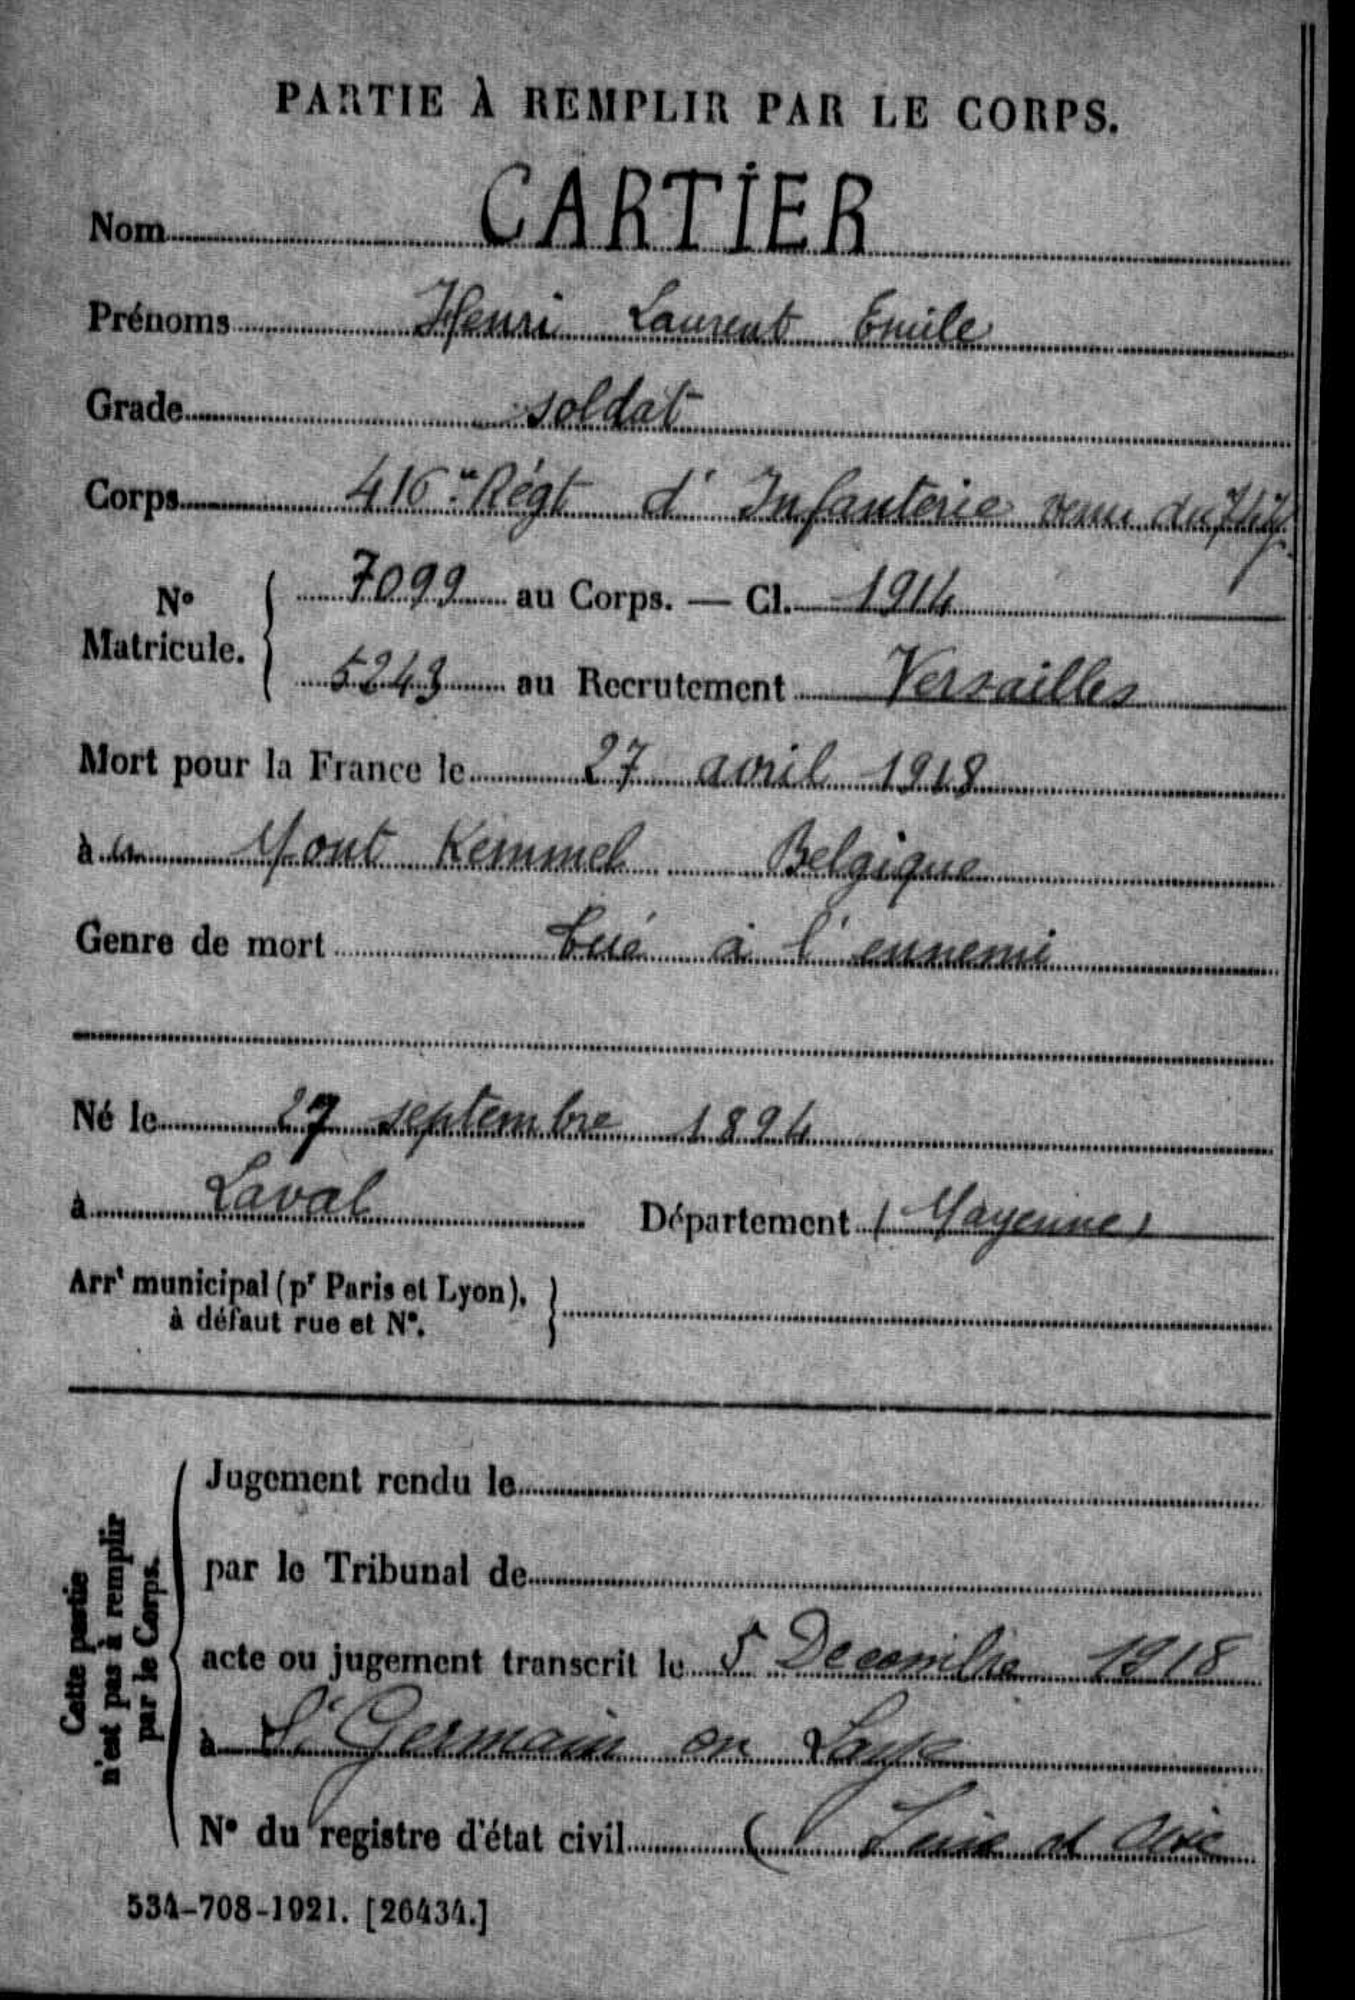 PARTIE À REMPLIR PAR LE CORPS.
Nom CARTIER
Prénoms Henri Laurent Emile
Grade soldat
Corps 416e Régt d'Infanterie venu du
N° Matricule. { 7099 au Corps. — Cl. 1914
5243 au Recrutement Versailles
Mort pour la France le 27 avril 1918
à Mont Kemmel Belgique
Genre de mort tué à l'ennemi
Né le 27 septembre 1894
à Laval Département (Mayenne)
Arrt municipal (pr Paris et Lyon), }
à défaut rue et N°.
Cette partie
n'est pas à remplir
par le Corps.
Jugement rendu le
par le Tribunal de
acte ou jugement transcrit le 5 Decembre 1918
à St Germain en Laye
N° du registre d'état civil ( Seine et Oise
534-708-1921. [26434.]